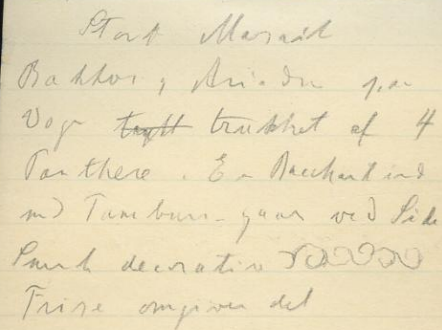 Stort Mosaik
Bakkos og Ariadne paa
Vogn trukket af 4
Panthere. En Bacchantinde
med Tamburin gaar ved Side
Smuk decorativ
Frise omgiver det